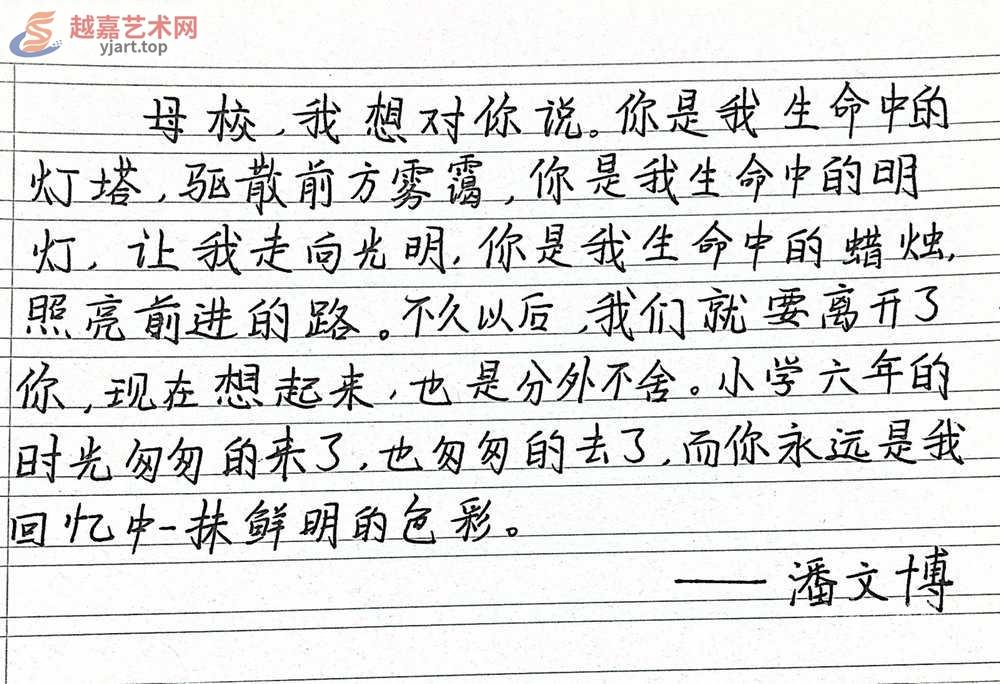 越嘉艺术网
yjart.top
母校,我想对你说。你是我生命中的
灯塔,驱散前方雾霭,你是我生命中的明
灯,让我走向光明,你是我生命中的蜡烛,
照亮前进的路。不久以后,我们就要离开了
你,现在想起来,也是分外不舍。小学六年的
时光匆匆的来了,也匆匆的去了,而你永远是我
回忆中一抹鲜明的色彩。
——潘文博